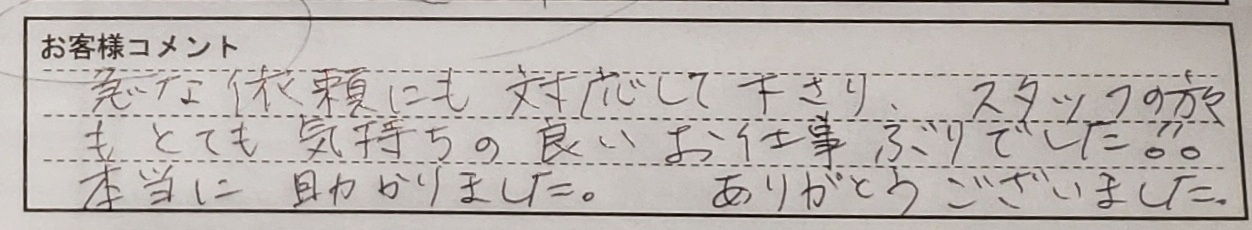 お客様コメント
急な依頼にも対応して下さり、スタッフの方々
もとても気持ちの良いお仕事ぶりでした!!
本当に助かりました。 ありがとうございました。